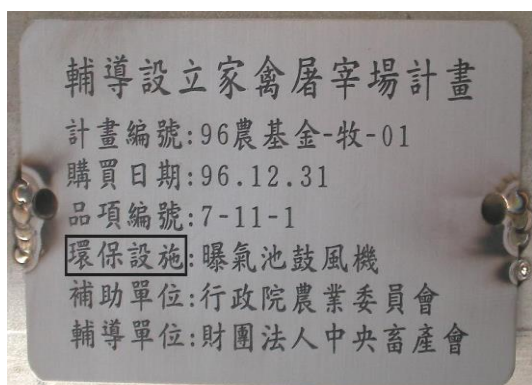 輔導設立家禽屠宰場計畫
計畫編號:96農基金-牧-01
購買日期:96.12.31
品項編號:7-11-1
環保設施:曝氣池鼓風機
補助單位:行政院農業委員會
輔導單位:財團法人中央畜產會